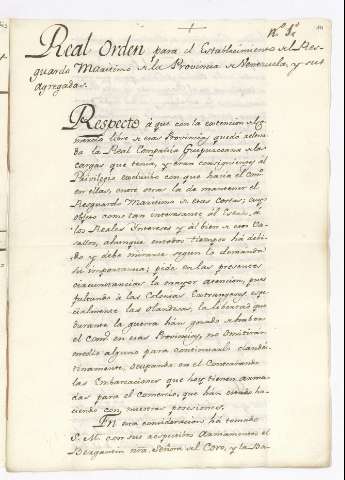 nº 1º
Real Orden para el Establecimiento del Res-
guardo Maritimo de la Provincia de Venezuela, y sus
agregadas.
Respecto á que con la extencion del co-
mercio libre á esas Provincias, quedó releva-
da la Real Compañia Guipuzcoana de las
cargas que tenia, y eran consiguientes al
Privilegio exclusivo con que hacia el com.º
en ellas, entre otras la de mantener el
Resguardo Maritimo de esas Costas; cuyo
objeto como tan interesante al Estado, á
los Reales Intereses y al bien de esos Va-
sallos, aunque en todos tiempos há debi-
do y debe mirarse segun lo demanda
su importancia; pide en las presentes
circunstancias la mayor atencion, pues
faltando á las Colonias Extrangeras espe-
cialmente las olandesas, la libertad que
durante la guerra hán gozado de hacer
el com.º en esas Provincias, no omitirán
medio alguno para continuarlo clandes-
tinamente, ocupando en el Contrabando
las Embarcaciones que hoy tienen arma-
das para el comercio, que hán estado ha-
ciendo con nuestras posesiones.
En esta consideracion há tomado
S. M. con sus respectivos Armamentos el
Bergantin nra. Señora de Coro, y la Ba-